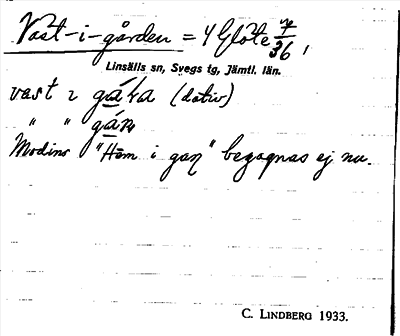 Vast-i-gården = 4 Glöte 7/36,
Linsälls sn, Svegs tg, Jämtl. län.
vast i (dativ)
" "
"Hem i gaɳ" begagnas ej nu.
C. LINDBERG 1933.